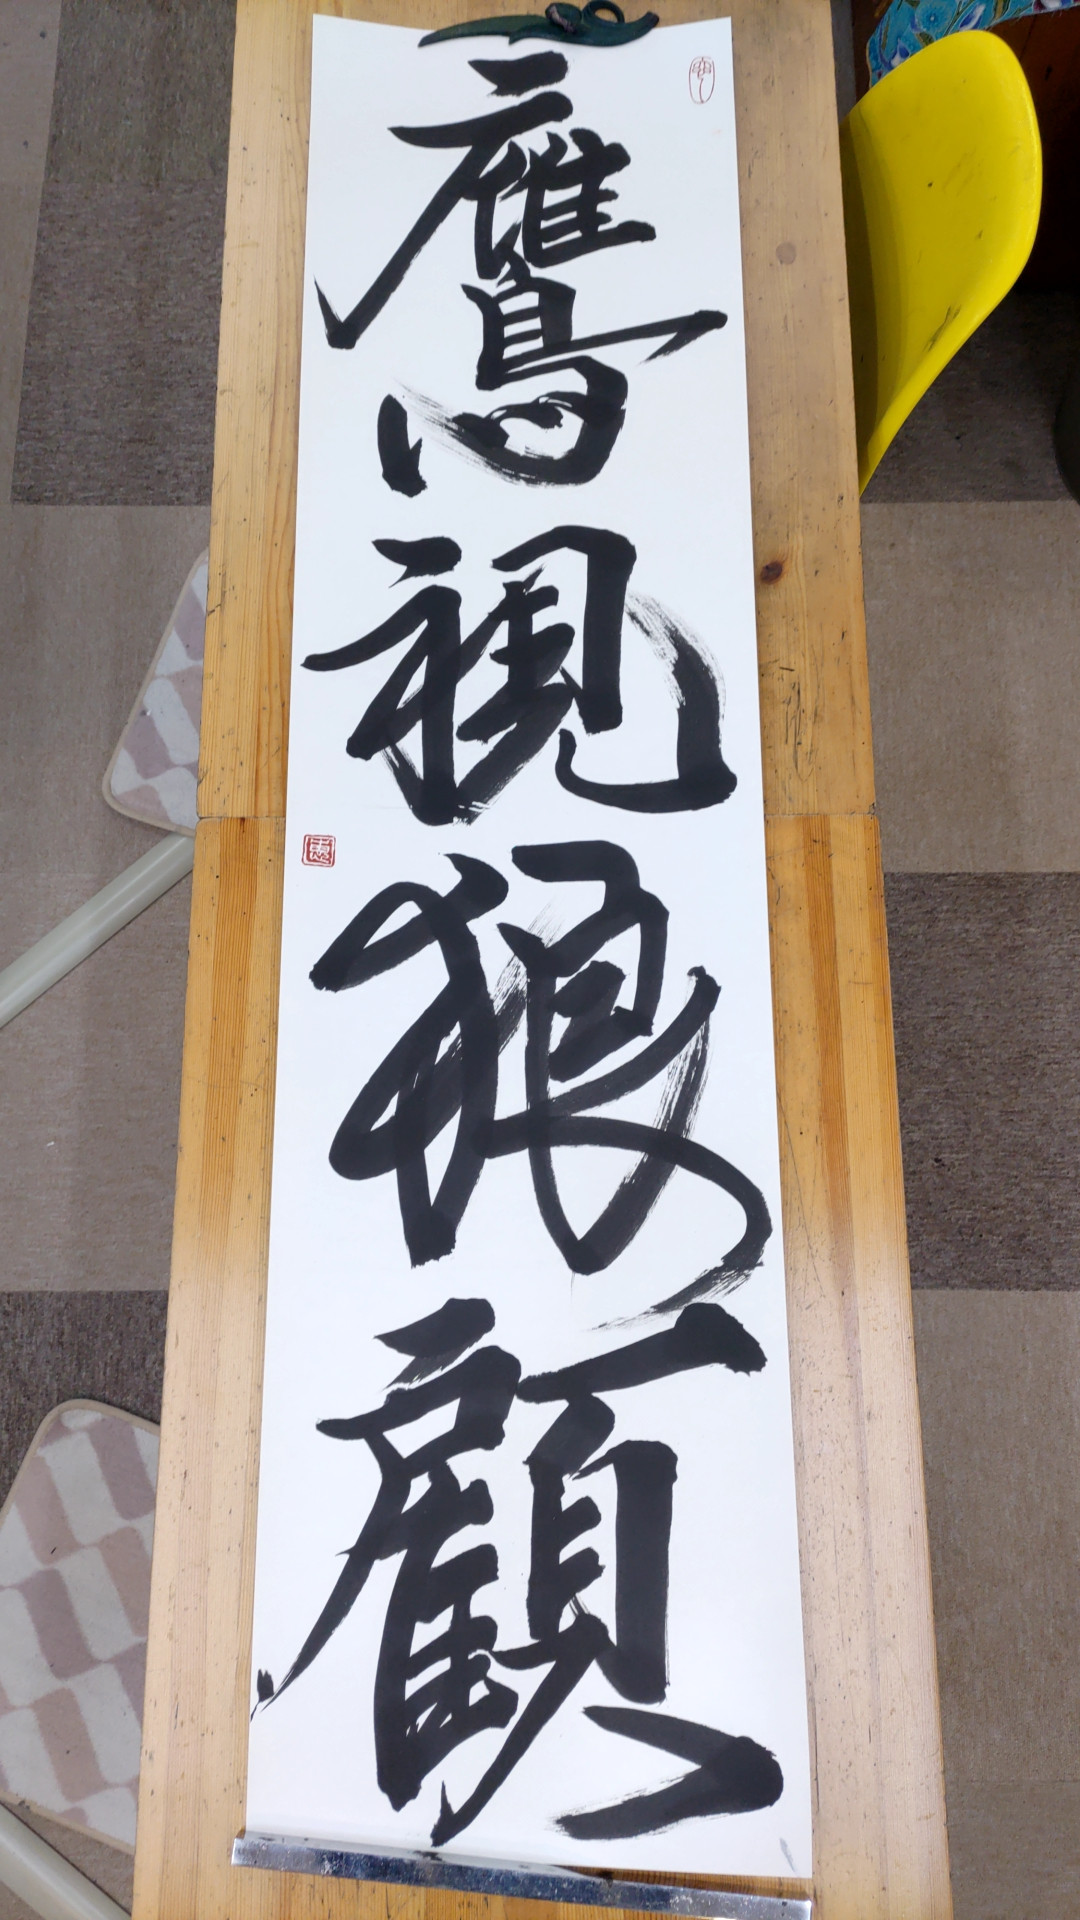 鷹視狼顧